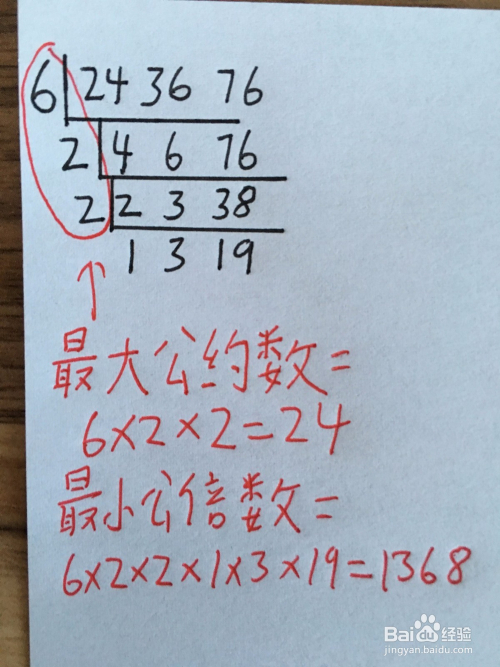 6 24 36 76
2 4 6 76
2 2 3 38
1 3 19
最大公约数=
6×2×2=24
最小公倍数=
6×2×2×1×3×19=1368
Bai度经验
jingyan.baidu.com